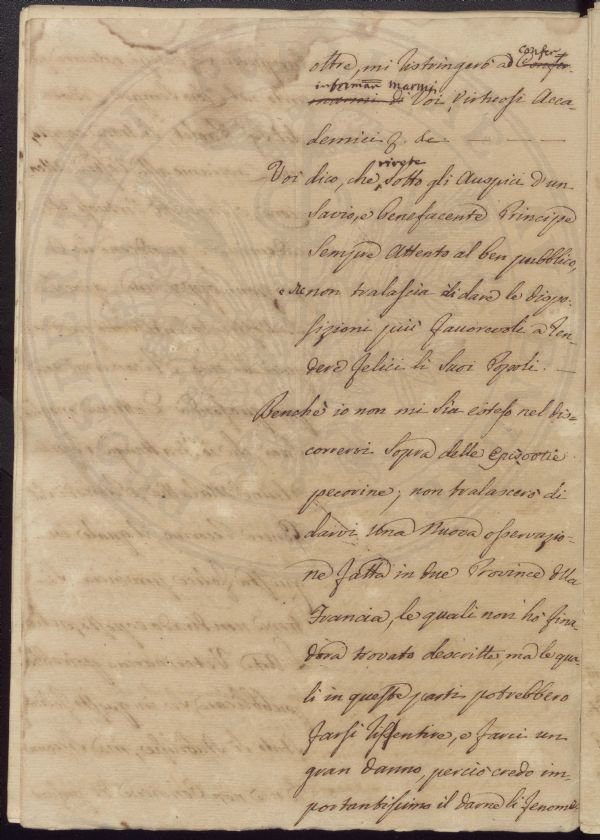 oltre, mi ristringerò ad Confer-
confer-
in forman marmi
marmi di Voi, Virtuosi Acca-
demici &. &c
virete
Voi dico, che sotto gli Auspici d'un
Savio, e benefacente Principe
sempre attento al ben pubblico,
e che non tralascia di dare le dispo-
sizioni più favorevoli a ren-
dere felici li suoi Popoli. —
Benchè io non mi sia esteso nel dis-
corrervi sopra delle Epizootie
pecorine; non tralascerò di
darvi una nuova osservazio-
ne fatta in due Province della
Francia, le quali non hò fina-
dora trovato descritte, ma le qua-
li in queste parti potrebbero
farsi risentire, e farci un
gran danno, perciò credo im-
portantissimo il darne li fenome